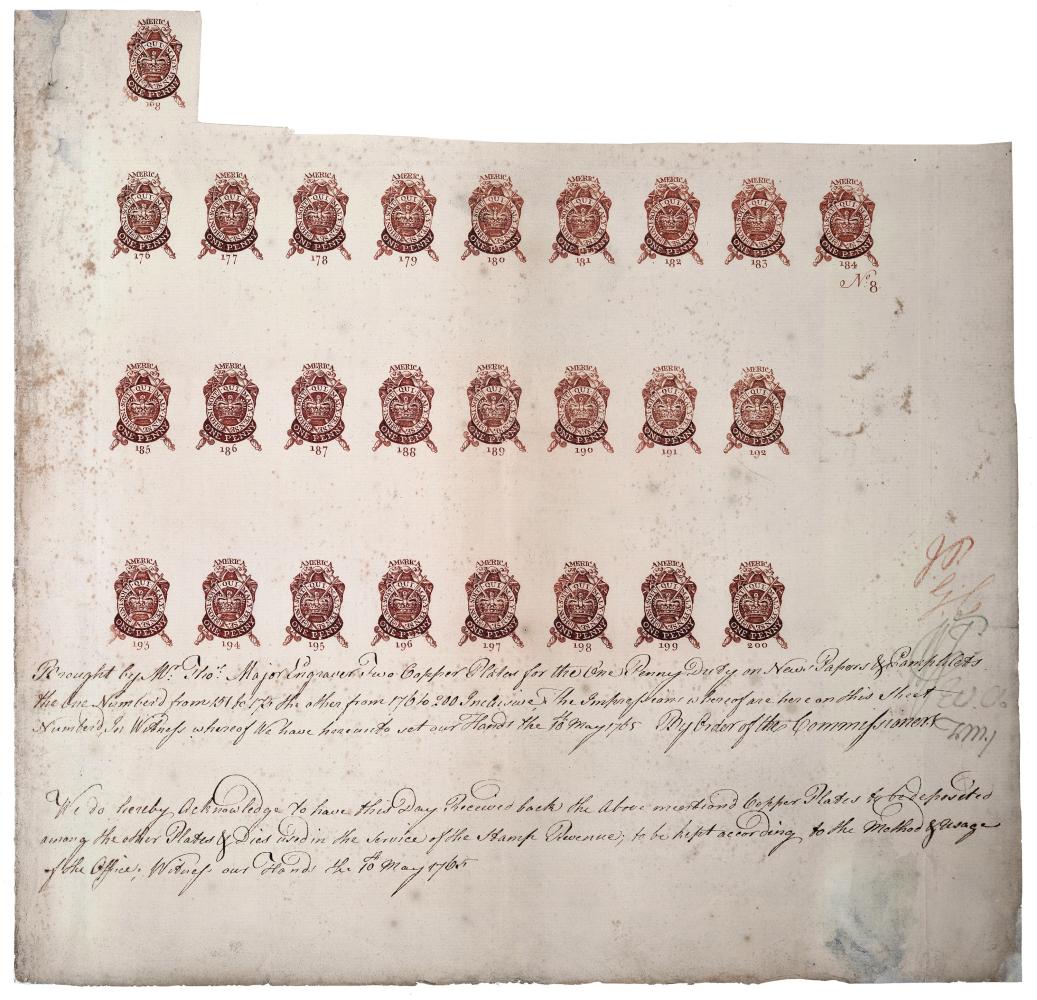 AMERICA
HONI SOIT QUI MAL Y PENSE
ONE PENNY
168
AMERICA AMERICA AMERICA AMERICA AMERICA AMERICA AMERICA AMERICA AMERICA
ONE PENNY ONE PENNY ONE PENNY ONE PENNY ONE PENNY ONE PENNY ONE PENNY ONE PENNY ONE PENNY
176 177 178 179 180 181 182 183 184
No. 8
AMERICA AMERICA AMERICA AMERICA AMERICA AMERICA AMERICA AMERICA
ONE PENNY ONE PENNY ONE PENNY ONE PENNY ONE PENNY ONE PENNY ONE PENNY ONE PENNY
185 186 187 188 189 190 191 192
AMERICA AMERICA AMERICA AMERICA AMERICA AMERICA AMERICA AMERICA
ONE PENNY ONE PENNY ONE PENNY ONE PENNY ONE PENNY ONE PENNY ONE PENNY ONE PENNY
193 194 195 196 197 198 199 200
Brought by Mr. Thos. Major Engraver Two Copper Plates for the One Penny Duty on News Papers & Pamphlets
the one Numberd from 151 to 175 the other from 176 to 200 Inclusive The Impressions whereof are here on this Sheet
Numberd In Witness whereof We have hereunto set our Hands the 10th May 1765 By Order of the Commissioners
We do hereby Acknowledge To have this Day Received back the Above mentiond Copper Plates to be deposited
among the other Plates & Dies used in the Service of the Stamp Revenue; to be kept according to the Method & usage
of the Office; Witness our Hands the 10th May 1765